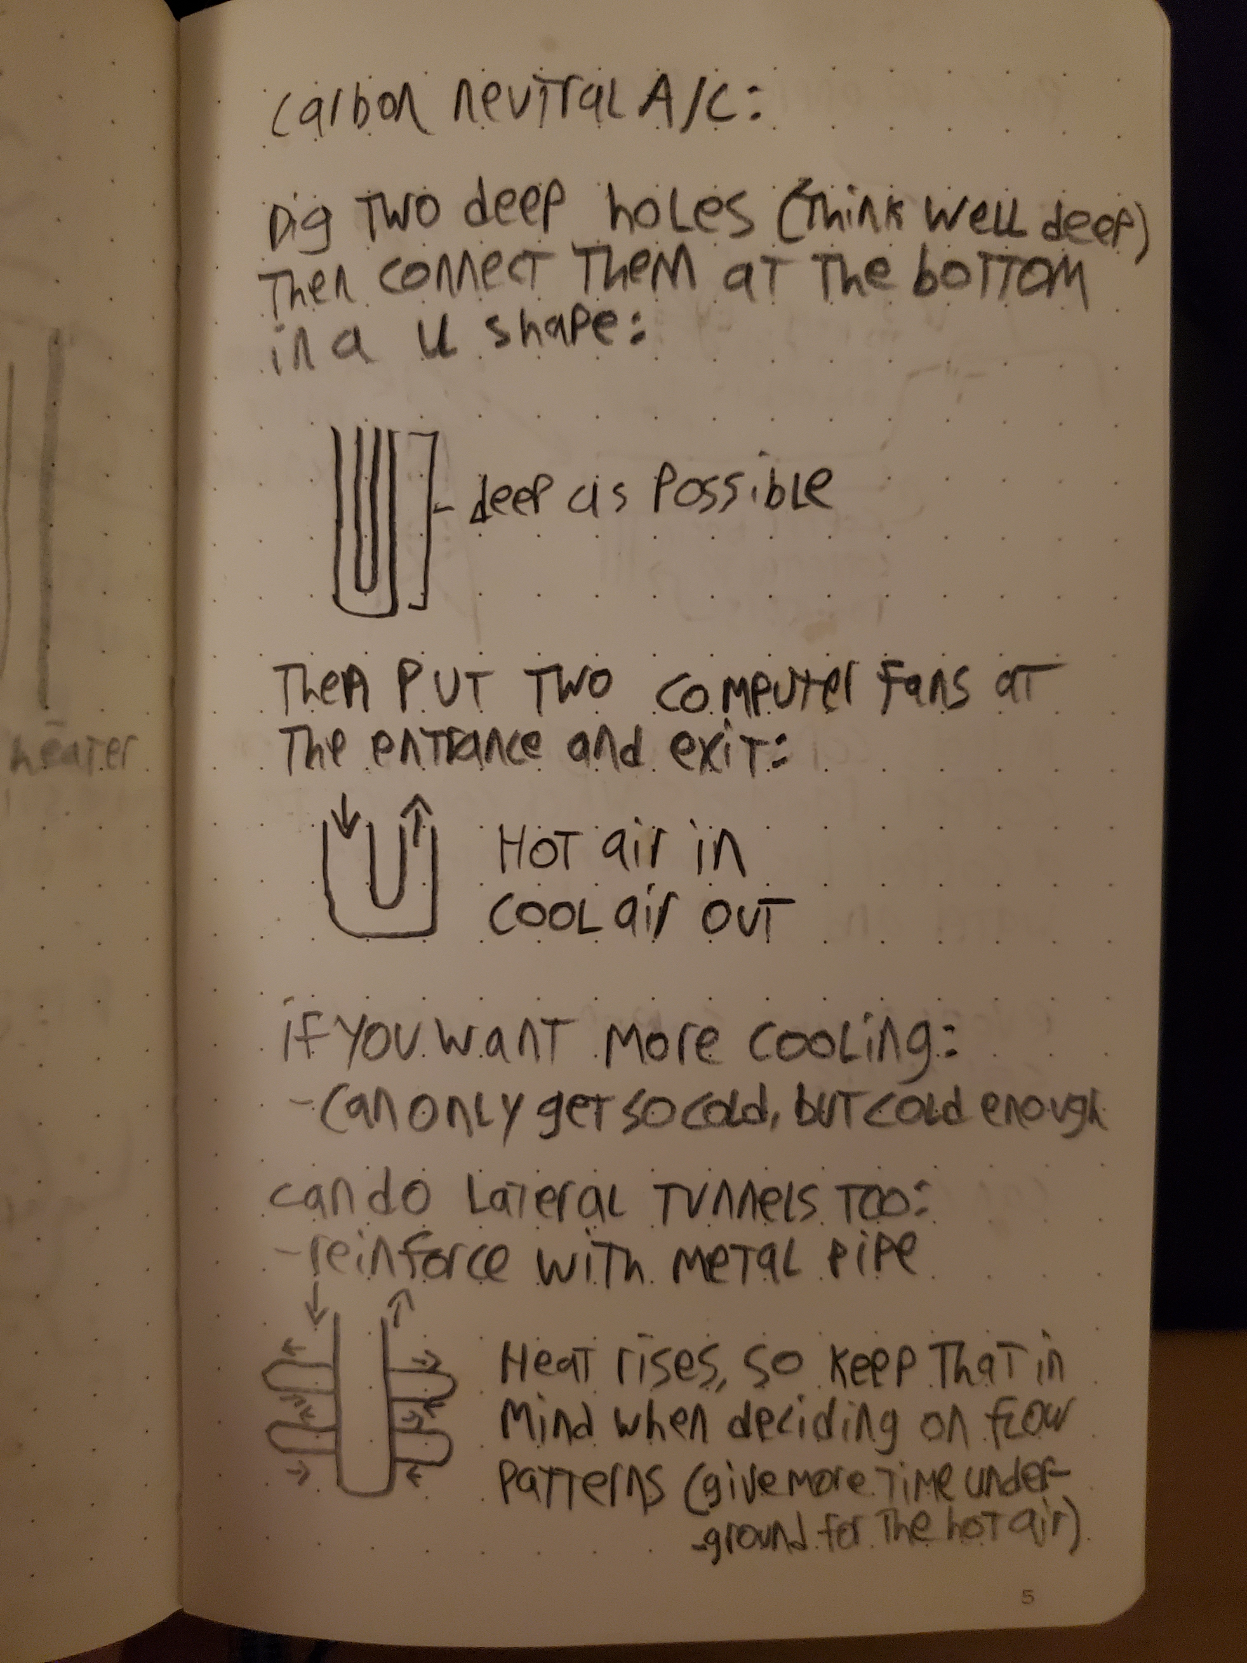 heater
Carbon neutral A/C:
Dig Two deep holes (Think well deep)
Then connect Them at The bottom
in a U shape:
- deep as possible
Then put two computer fans at
The entrance and exit:
Hot air in
cool air out
if you want more cooling:
- can only get so cold, but cold enough
can do lateral tunnels too:
- reinforce with metal pipe
Heat rises, so keep that in
mind when deciding on flow
patterns (give more time under-
-ground for the hot air)
5